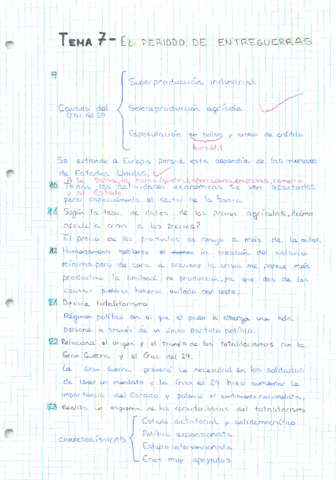 TEMA 7 - EL PERIODO DE ENTREGUERRAS
9
Superproducción industrial
Causas del
Crac del 29
Sobreproducción agrícola
Especulación en bolsa y exceso de crédito
bursátil
Se extiende a Europa porque esta dependía de las
de Estados Unidos.
10 A la banca, empresas, comercio
y al Estado.
todas las actividades económicas se ven afectadas
pero especialmente el sector de la banca
11 Según la tabla de datos de los precios agrícolas, ¿cómo
afecta la crisis a los precios?
El precio de los productos se redujo a más de la mitad.
12 Humanamente hablando la creación del salario
mínimo, pero de cara a prevenir la crisis me parece más
productivo la producción, ya que dos de las
causas hubieran evitado por esto.
21 Define totalitarismo
Régimen político en el que el poder lo alberga una sola
persona a través de un único partido político.
22 Relaciona el origen y el triunfo de los totalitarismos con la
Gran Guerra y el Crac del 29.
La Gran Guerra provocó la necesidad en los soldados
de tener un mandato y la Crisis del 29 hizo aumentar la
importancia del Estado y potenció el sentimiento nacionalista.
23 Realiza un esquema de las características del totalitarismo
Estado dictatorial y antidemocrático
Política expansionista
CARACTERÍSTICAS
Estado intervencionista
Eran muy apoyados